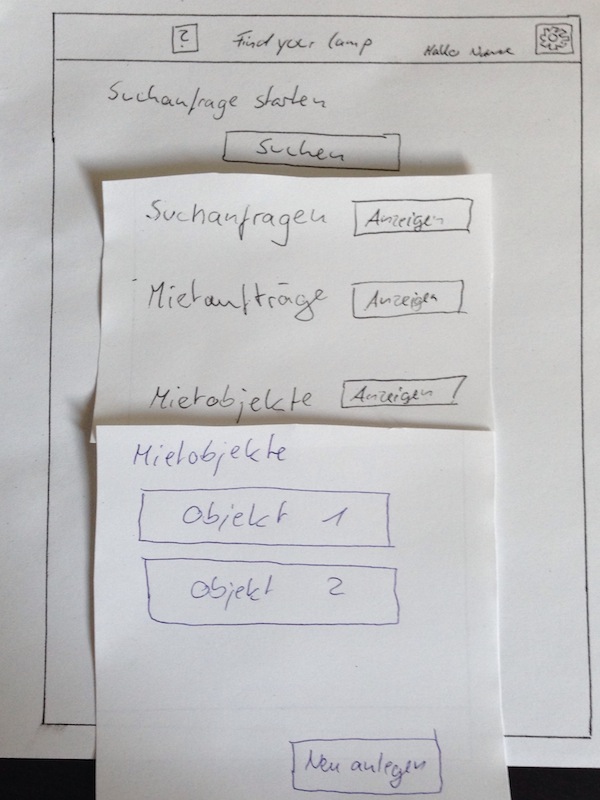 ? Find your lamp Hallo Name
Suchanfrage starten
Suchen
Suchanfragen Anzeigen
Mietaufträge Anzeigen
Mietobjekte Anzeigen
Mietobjekte
Objekt 1
Objekt 2
Neu anlegen